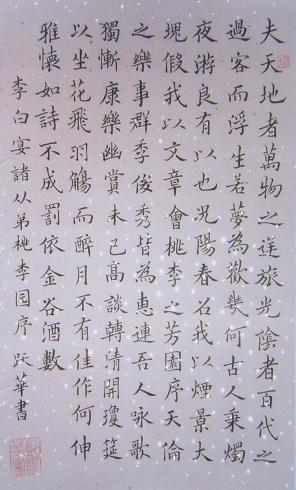 夫天地者萬物之逆旅光陰者百代之
過客而浮生若夢為歡幾何古人秉燭
夜游良有以也況陽春召我以煙景大
塊假我以文章會桃李之芳園序天倫
之樂事群季俊秀皆為惠連吾人咏歌
獨慚康樂幽賞未已高談轉清開瓊筵
以坐花飛羽觴而醉月不有佳作何伸
雅懷如詩不成罰依金谷酒數
李白宴諸从弟桃李园序 跃華書